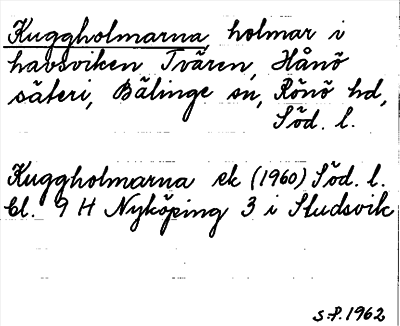 Kuggholmarna, holmar i
havsviken Tvären, Hånö
säteri, Bälinge sn, Rönö hd,
Söd. l.
Kuggholmarna ek (1960) Söd. l.
Bl. 9 H Nyköping 3 i Studsvik
S-P. 1962